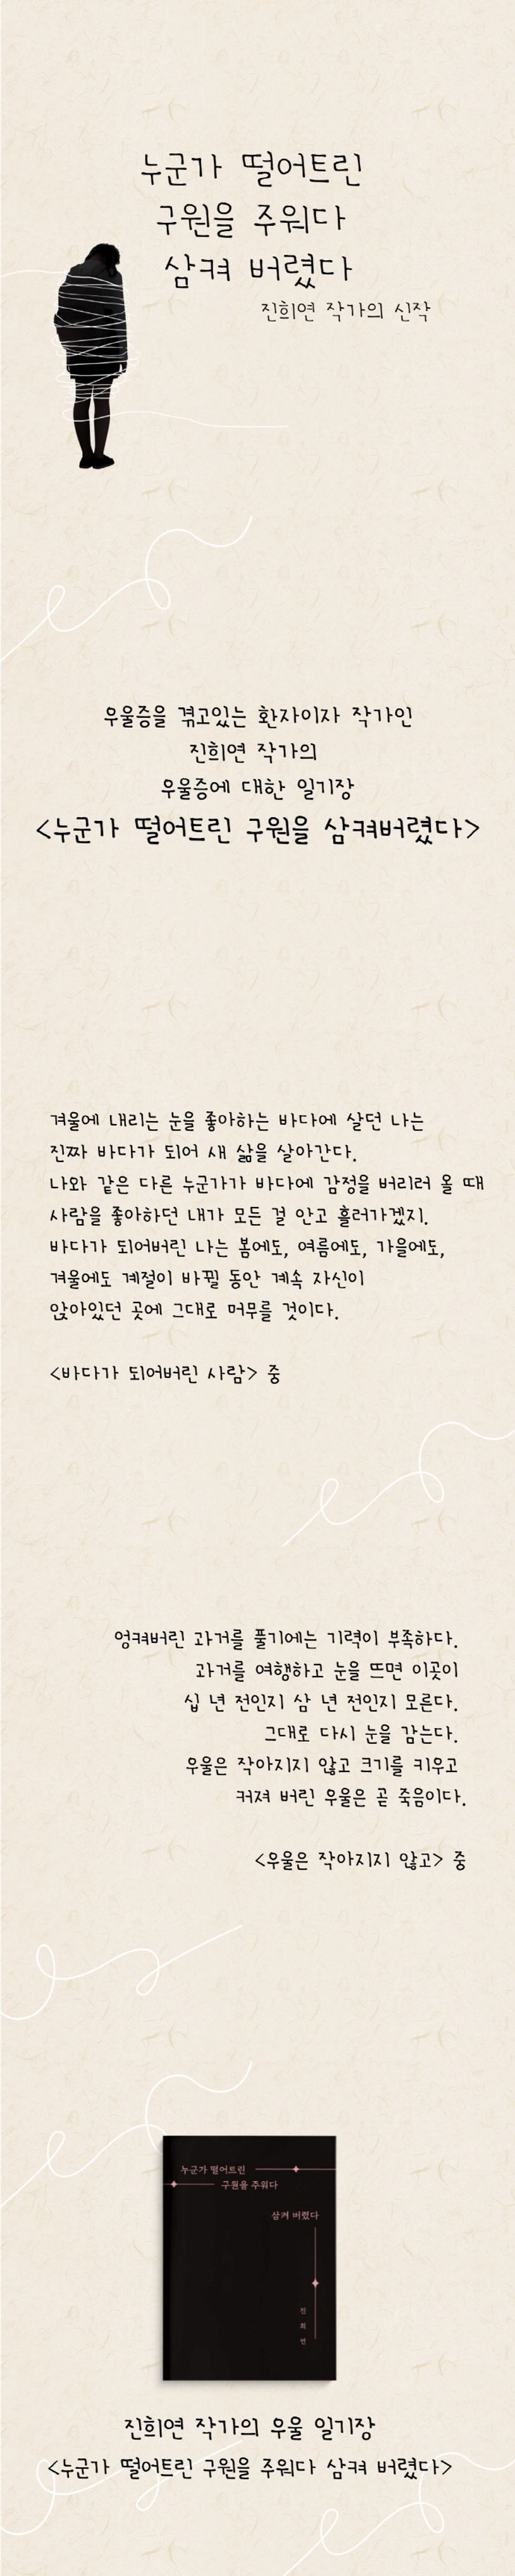 누군가 떨어트린
구원을 주워다
삼켜 버렸다
진희연 작가의 신작
우울증을 겪고있는 환자이자 작가인
진희연 작가의
우울증에 대한 일기장
<누군가 떨어트린 구원을 삼켜버렸다>
겨울에 내리는 눈을 좋아하는 바다에 살던 나는
진짜 바다가 되어 새 삶을 살아간다.
나와 같은 다른 누군가가 바다에 감정을 버리러 올 때
사람을 좋아하던 내가 모든 걸 안고 흘러가겠지.
바다가 되어버린 나는 봄에도, 여름에도, 가을에도,
겨울에도 계절이 바뀔 동안 계속 자신이
앉아있던 곳에 그대로 머무를 것이다.
<바다가 되어버린 사람> 중
엉켜버린 과거를 풀기에는 기력이 부족하다.
과거를 여행하고 눈을 뜨면 이곳이
십 년 전인지 삼 년 전인지 모른다.
그대로 다시 눈을 감는다.
우울은 작아지지 않고 크기를 키우고
커져 버린 우울은 곧 죽음이다.
<우울은 작아지지 않고> 중
누군가 떨어트린
구원을 주워다
삼켜 버렸다
진
희
연
진희연 작가의 우울 일기장
<누군가 떨어트린 구원을 주워다 삼켜 버렸다>